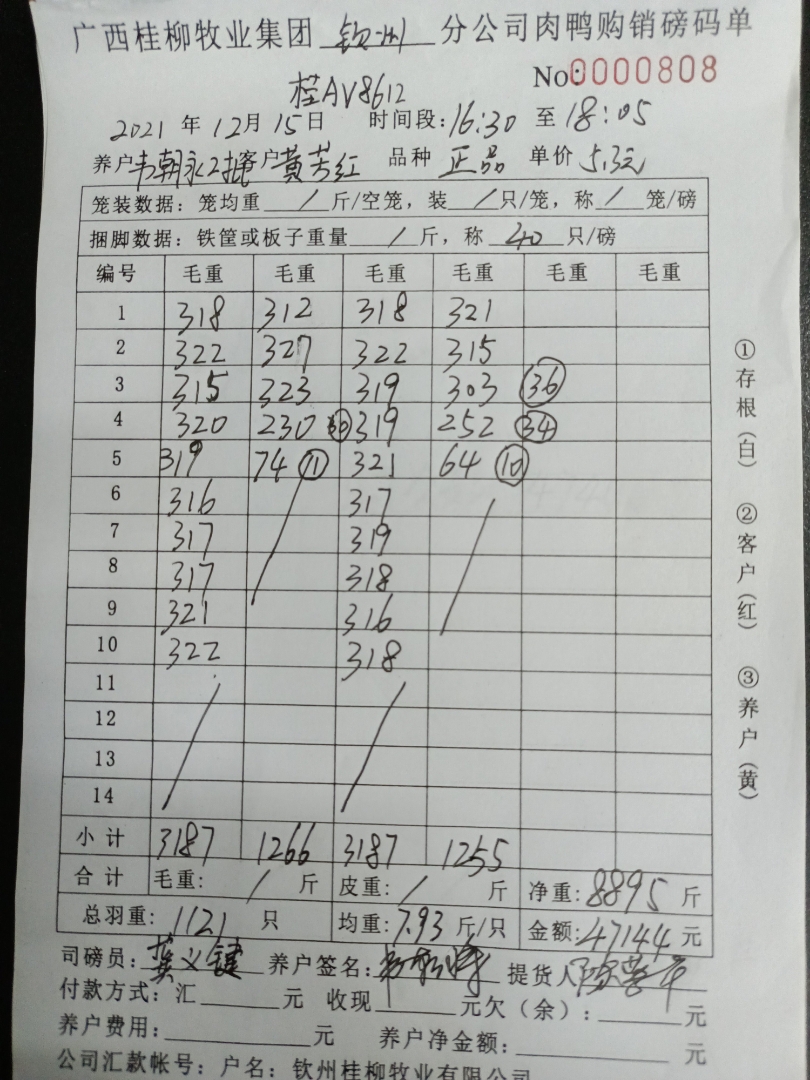 广西桂柳牧业集团 钦州 分公司肉鸭购销磅码单
No:0000808
桂AV8612
2021 年 12月 15日 时间段:16:30 至 18:05
养户韦朝永2批客户黄芳红 品种 正品 单价 5.3元
笼装数据:笼均重 / 斤/空笼,装 / 只/笼,称 / 笼/磅
捆脚数据:铁筐或板子重量 / 斤,称 40 只/磅
编号 毛重 毛重 毛重 毛重 毛重 毛重
1 318 312 318 321
2 322 327 322 315
3 315 323 319 303 36
4 320 230 319 252 34
5 319 74 11 321 64 10
6 316 317
7 317 319
8 317 318
9 321 316
10 322 318
11
12
13
14
小计 3187 1266 3187 1255
合计 毛重: / 斤 皮重: / 斤 净重: 8895 斤
总羽重: 1121 只 均重: 7.93 斤/只 金额: 47144 元
司磅员: 龚义键 养户签名: 提货人
付款方式:汇 元 收现 元欠(余): 元
养户费用: 元 养户净金额: 元
公司汇款帐号:户名:钦州桂柳牧业有限公司
①存根(白) ②客户(红) ③养户(黄)